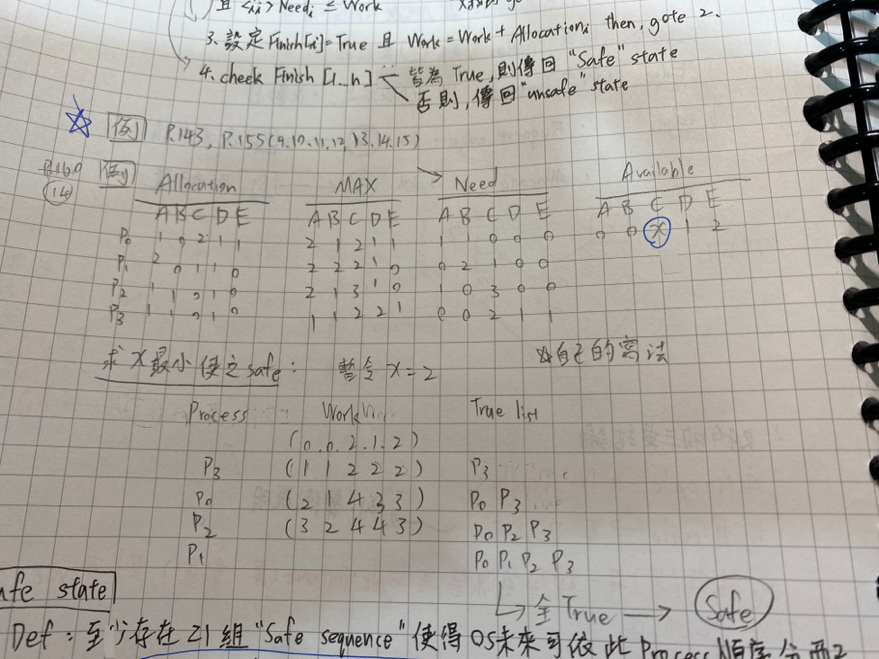 且 <ii> Needi ≤ Work
3. 設定 Finish[i]=True 且 Work = Work + Allocationi then, gote 2.
4. check Finish [1...n] 皆為 True, 則傳回 "Safe" state
否則, 傳回 "unsafe" state
☆ 例 P.143, P.155 (9.10.11.12.13.14.15)
14 例 Allocation MAX → Need Available
A B C D E A B C D E A B C D E A B C D E
P0 1 0 2 1 1 2 1 2 1 1 1 0 0 0 0 0 X 1 2
P1 2 0 1 1 0 2 2 2 1 0 0 2 1 0 0
P2 1 1 0 1 0 2 1 3 1 0 1 0 3 0 0
P3 1 1 1 1 0 1 1 2 2 1 0 0 2 1 1
求 X 最小使之 safe: 暫令 X=2 ☆自己的寫法
Process Work True list
(0.0.2.1.2)
P3 (1 1 2 2 2) P3
P0 (2 1 4 3 3) P0 P3
P2 (3 2 4 4 3) P0 P2 P3
P1 P0 P1 P2 P3
全 True → Safe
afe state
Def: 至少存在 ≥1 組 "Safe sequence" 使得 OS 未來可依此 Process 順序分配